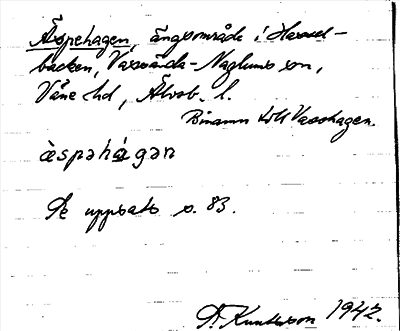 Äspehagen, ängsområde i Hassel-
backen, Vassända-Naglums sn,
Väne hd, Älvsb. l.
Binamn till Vasshagen.
àspəhágən
Se uppsats s. 83.
A. Knutsson 1942.